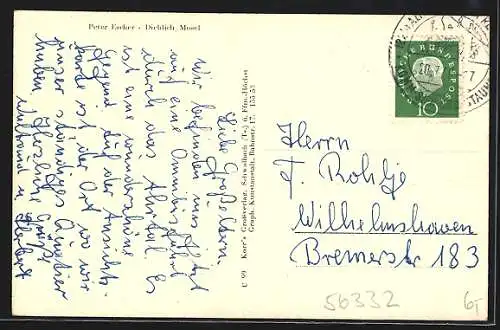 Peter Escher - Dieblich, Mosel
Liebe Großeltern.
Wir befinden uns jetzt
auf eine Omnibusfahrt
durch das Ahrtal. Es
ist eine wunderschöne
Gegend auf der Ansichts-
karte ist der Ort wo wir
unser ständiges Quartier
haben. Herzliche Grüße
Waltraud u. Herbert
U 99 Korr's Großverlag, Schwalbach (Ts.) b. Ffm.-Höchst
Graph. Kunstanstalt, Bahnstr. 17, 155 51
DEUTSCHE BUNDESPOST
10
Herrn
F. Rohlje
Wilhelmshaven
Bremerstr 183
56332
6,-